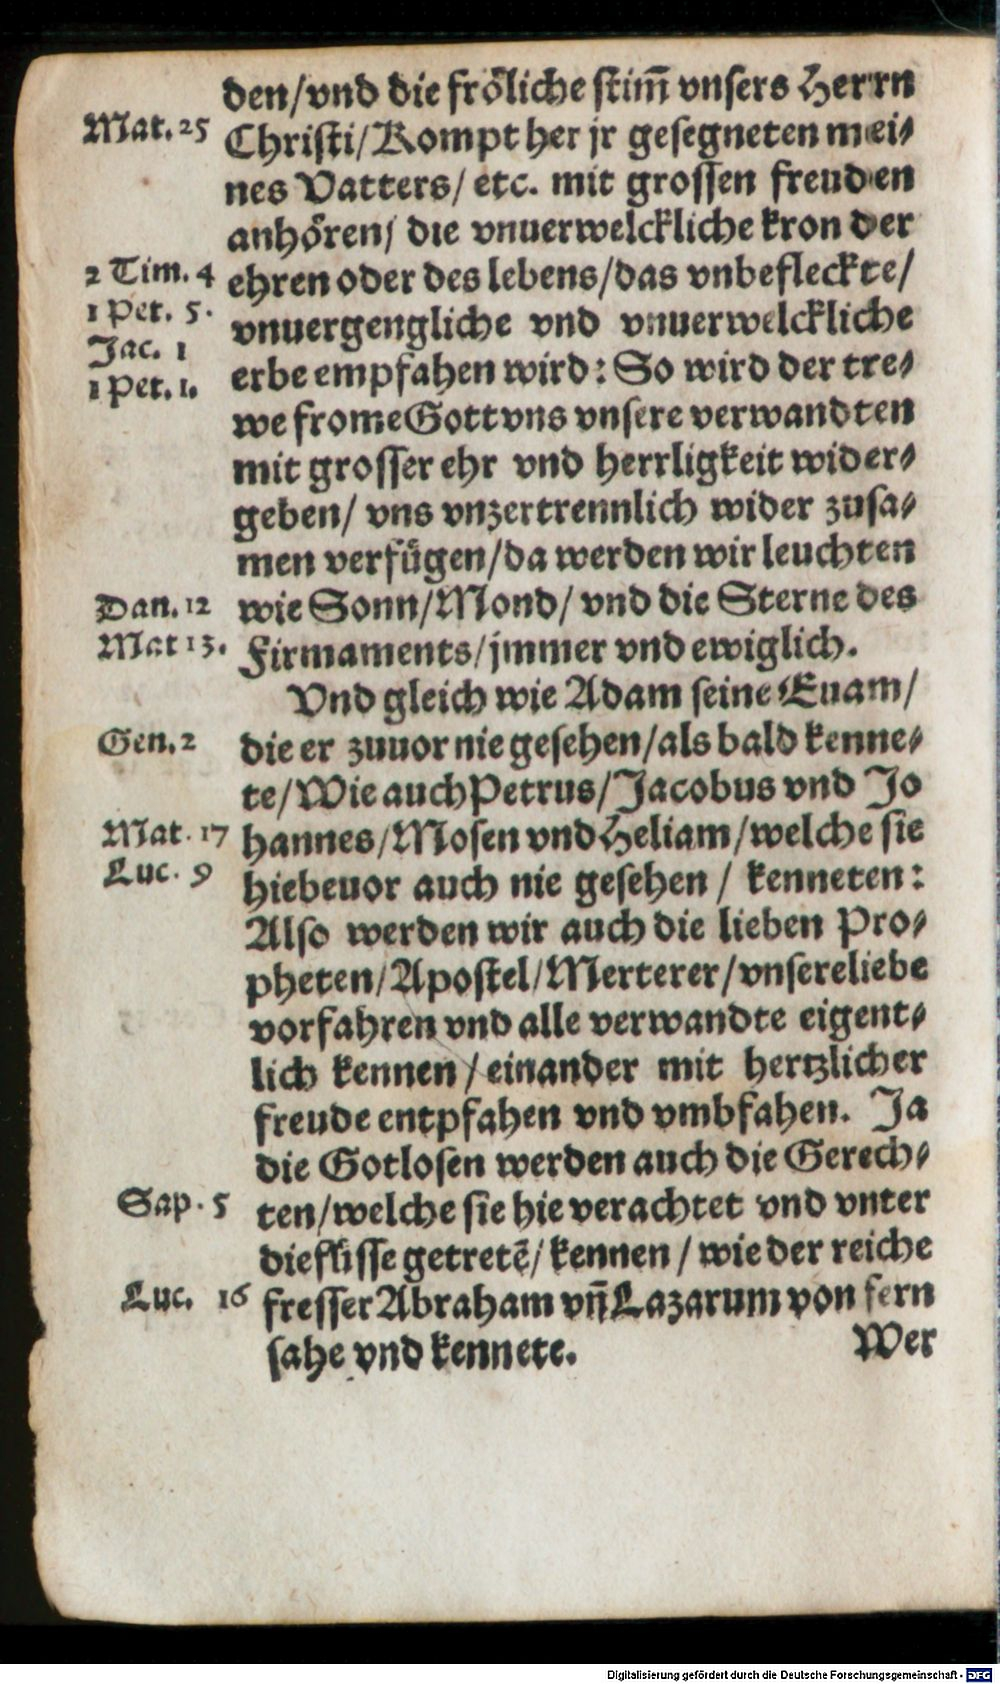 den/vnd die fröliche stim̃ vnsers Herrn
Mat. 25 Christi/Kompt her jr gesegneten mei⸗
nes Vatters/ etc. mit grossen freuden
anhören/ die vnuerwelckliche kron der
2 Tim. 4 ehren oder des lebens/das vnbefleckte/
1 Pet. 5. vnuergengliche vnd vnuerwelckliche
Jac. 1
1 Pet. 1. erbe empfahen wird: So wird der tre⸗
we frome Gott vns vnsere verwandten
mit grosser ehr vnd herrligkeit wider⸗
geben/ vns vnzertrennlich wider zusa⸗
men verfügen/da werden wir leuchten
Dan. 12 wie Sonn/Mond/ vnd die Sterne des
Mat 13. Firmaments/jmmer vnd ewiglich.
Vnd gleich wie Adam seine Euam/
Gen. 2 die er zuuor nie gesehen/als bald kenne⸗
te/Wie auch Petrus/Jacobus vnd Jo
Mat. 17 hannes/Mosen vnd Heliam/welche sie
Luc. 9 hiebeuor auch nie gesehen / kenneten:
Also werden wir auch die lieben Pro⸗
pheten/Apostel/Merterer/vnsere liebe
vorfahren vnd alle verwandte eigent⸗
lich kennen / einander mit hertzlicher
freude entpfahen vnd vmbfahen. Ja
die Gotlosen werden auch die Gerech⸗
Sap. 5 ten/welche sie hie verachtet vnd vnter
die füsse getretē/ kennen / wie der reiche
Luc. 16 fresser Abraham vñ Lazarum von fern
sahe vnd kennete. Wer
Digitalisierung gefördert durch die Deutsche Forschungsgemeinschaft - DFG